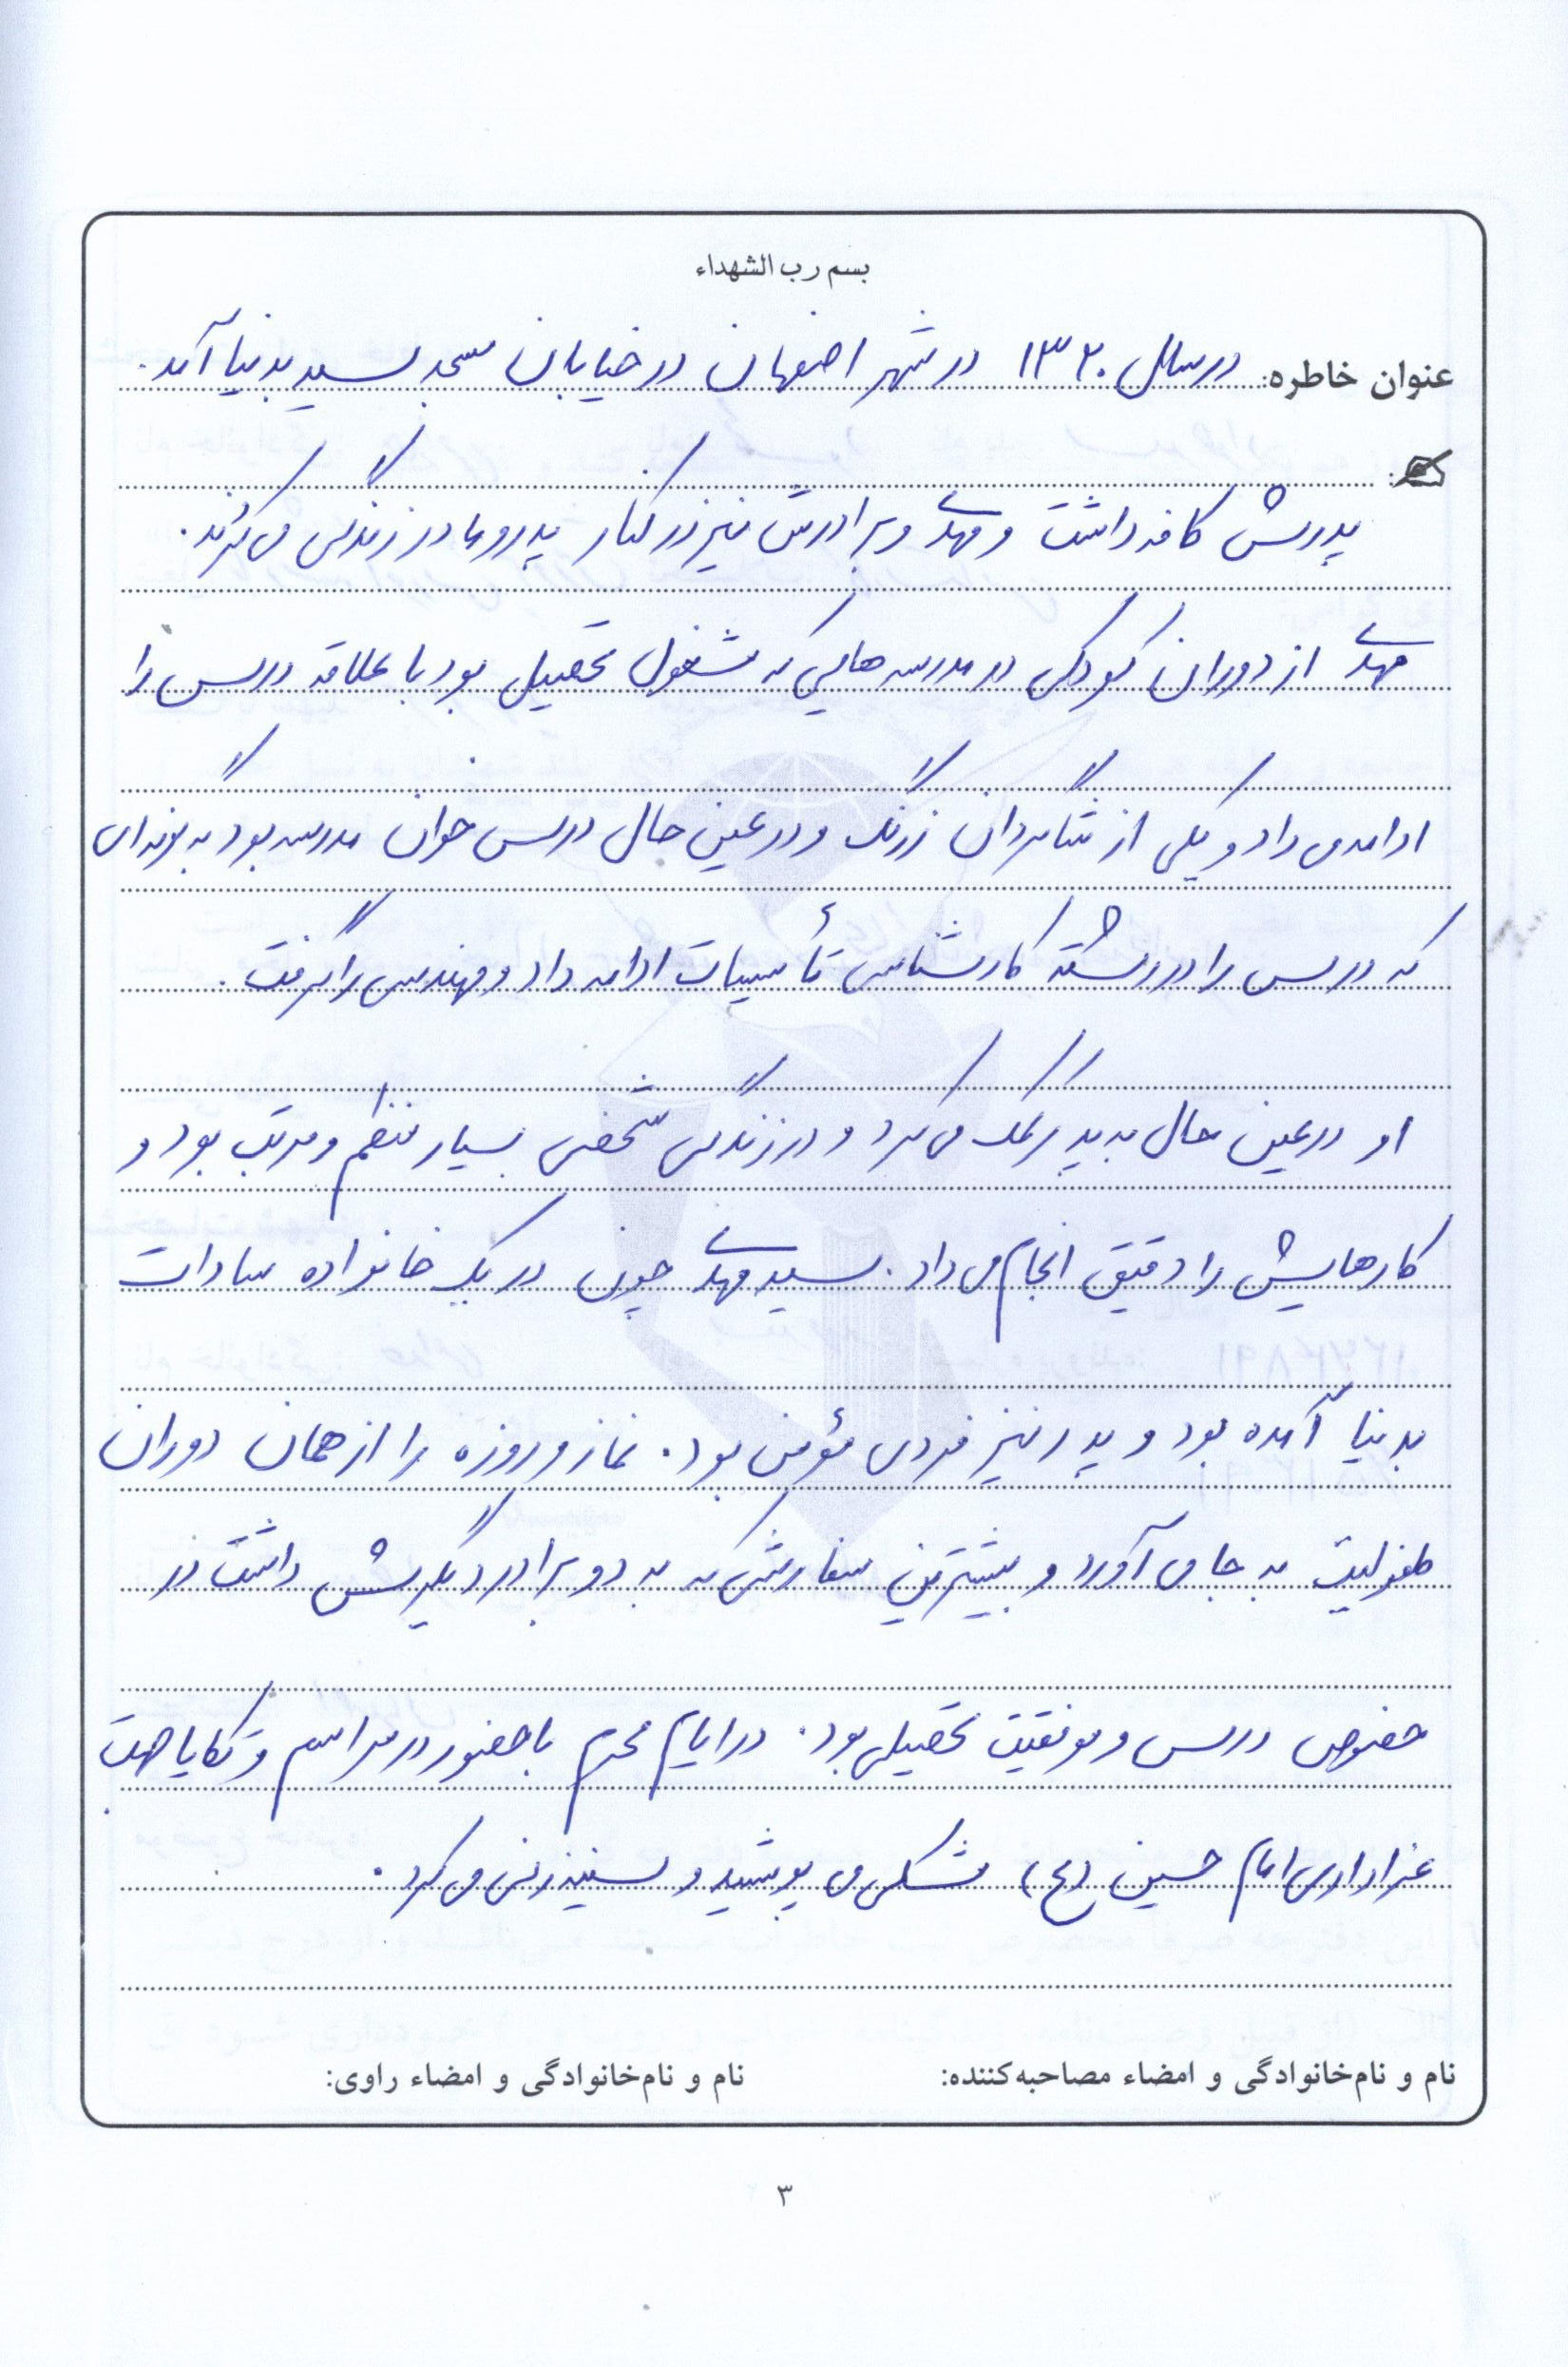 بسم رب الشهداء
عنوان خاطره: در سال ۱۳۲۰ در شهر اصفهان در خیابان مسجد سید بدنیا آمد.
پدرش کافه داشت و مهدی و برادرش نیز در کنار پدر و مادر زندگی می کردند.
مهدی از دوران کودکی در مدرسه هایی که مشغول تحصیل بود با علاقه درس را
ادامه می داد و یکی از شاگردان زرنگ و در عین حال درس خوان مدرسه بود به گونه ای
که درس را در رشته کارشناسی تأسیسات ادامه داد و مهندسی را گرفت.
او در عین حال به پدر کمک می کرد و در زندگی شخصی بسیار منظم و مرتب بود و
کارهایش را دقیق انجام می داد. سید مهدی چون در یک خانواده سادات
بدنیا آمده بود و پدر نیز فردی مؤمن بود. نماز و روزه را از همان دوران
طفولیت به جا می آورد و بیشترین سفارشی که به دو برادر دیگرش داشت در
خصوص درس و موفقیت تحصیلی بود. در ایام محرم با حضور در مراسم و تکایا جهت
عزاداری امام حسین (ع) مشکی می پوشید و سینه زنی می کرد.
نام و نام‌خانوادگی و امضاء مصاحبه‌کننده: نام و نام‌خانوادگی و امضاء راوی:
۳